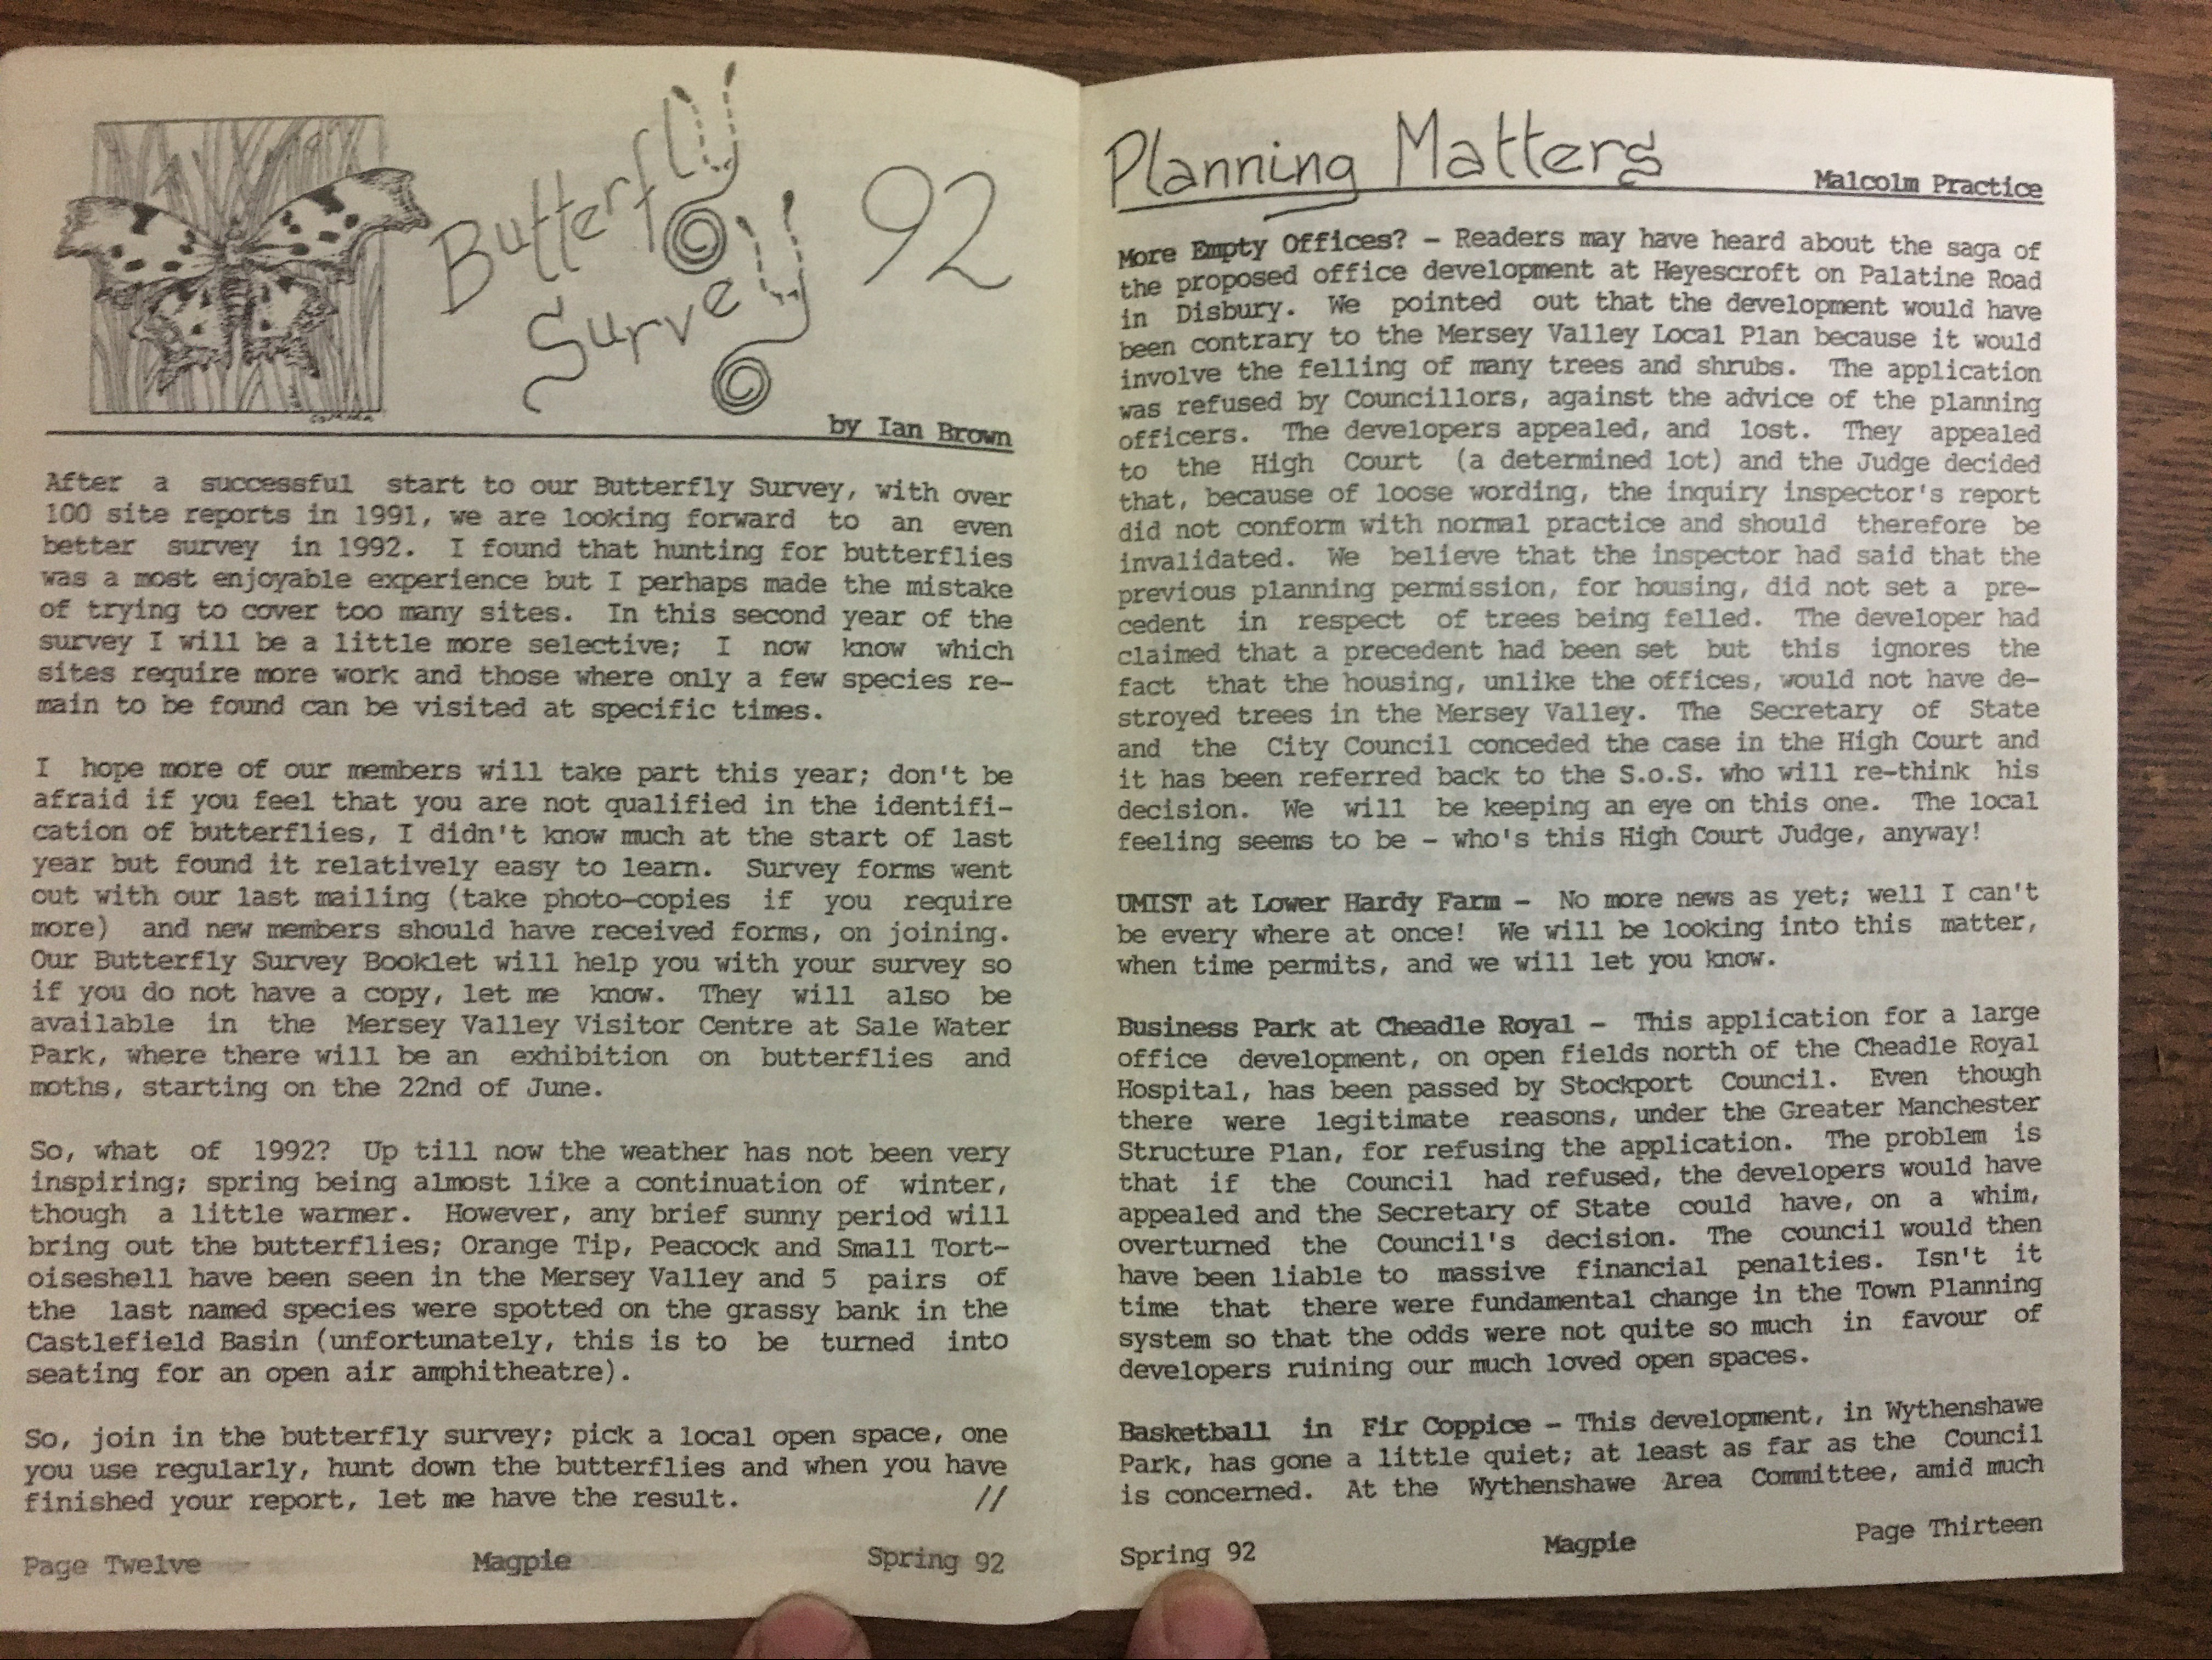 Butterfly
Survey 92
by Ian Brown
After a successful start to our Butterfly Survey, with over
100 site reports in 1991, we are looking forward to an even
better survey in 1992. I found that hunting for butterflies
was a most enjoyable experience but I perhaps made the mistake
of trying to cover too many sites. In this second year of the
survey I will be a little more selective; I now know which
sites require more work and those where only a few species re-
main to be found can be visited at specific times.
I hope more of our members will take part this year; don't be
afraid if you feel that you are not qualified in the identifi-
cation of butterflies, I didn't know much at the start of last
year but found it relatively easy to learn. Survey forms went
out with our last mailing (take photo-copies if you require
more) and new members should have received forms, on joining.
Our Butterfly Survey Booklet will help you with your survey so
if you do not have a copy, let me know. They will also be
available in the Mersey Valley Visitor Centre at Sale Water
Park, where there will be an exhibition on butterflies and
moths, starting on the 22nd of June.
So, what of 1992? Up till now the weather has not been very
inspiring; spring being almost like a continuation of winter,
though a little warmer. However, any brief sunny period will
bring out the butterflies; Orange Tip, Peacock and Small Tort-
oiseshell have been seen in the Mersey Valley and 5 pairs of
the last named species were spotted on the grassy bank in the
Castlefield Basin (unfortunately, this is to be turned into
seating for an open air amphitheatre).
So, join in the butterfly survey; pick a local open space, one
you use regularly, hunt down the butterflies and when you have
finished your report, let me have the result. //
Page Twelve Magpie Spring 92
Planning Matters
Malcolm Practice
More Empty Offices? - Readers may have heard about the saga of
the proposed office development at Heyescroft on Palatine Road
in Disbury. We pointed out that the development would have
been contrary to the Mersey Valley Local Plan because it would
involve the felling of many trees and shrubs. The application
was refused by Councillors, against the advice of the planning
officers. The developers appealed, and lost. They appealed
to the High Court (a determined lot) and the Judge decided
that, because of loose wording, the inquiry inspector's report
did not conform with normal practice and should therefore be
invalidated. We believe that the inspector had said that the
previous planning permission, for housing, did not set a pre-
cedent in respect of trees being felled. The developer had
claimed that a precedent had been set but this ignores the
fact that the housing, unlike the offices, would not have de-
stroyed trees in the Mersey Valley. The Secretary of State
and the City Council conceded the case in the High Court and
it has been referred back to the S.o.S. who will re-think his
decision. We will be keeping an eye on this one. The local
feeling seems to be - who's this High Court Judge, anyway!
UMIST at Lower Hardy Farm - No more news as yet; well I can't
be every where at once! We will be looking into this matter,
when time permits, and we will let you know.
Business Park at Cheadle Royal - This application for a large
office development, on open fields north of the Cheadle Royal
Hospital, has been passed by Stockport Council. Even though
there were legitimate reasons, under the Greater Manchester
Structure Plan, for refusing the application. The problem is
that if the Council had refused, the developers would have
appealed and the Secretary of State could have, on a whim,
overturned the Council's decision. The council would then
have been liable to massive financial penalties. Isn't it
time that there were fundamental change in the Town Planning
system so that the odds were not quite so much in favour of
developers ruining our much loved open spaces.
Basketball in Fir Coppice - This development, in Wythenshawe
Park, has gone a little quiet; at least as far as the Council
is concerned. At the Wythenshawe Area Committee, amid much
Spring 92 Magpie Page Thirteen